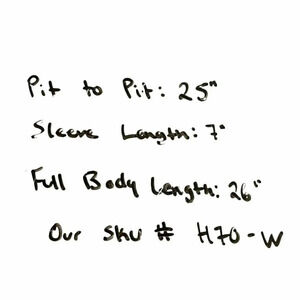 Pit to Pit: 25"
Sleeve Length: 7"
Full Body Length: 26"
Our SKU # H70-W